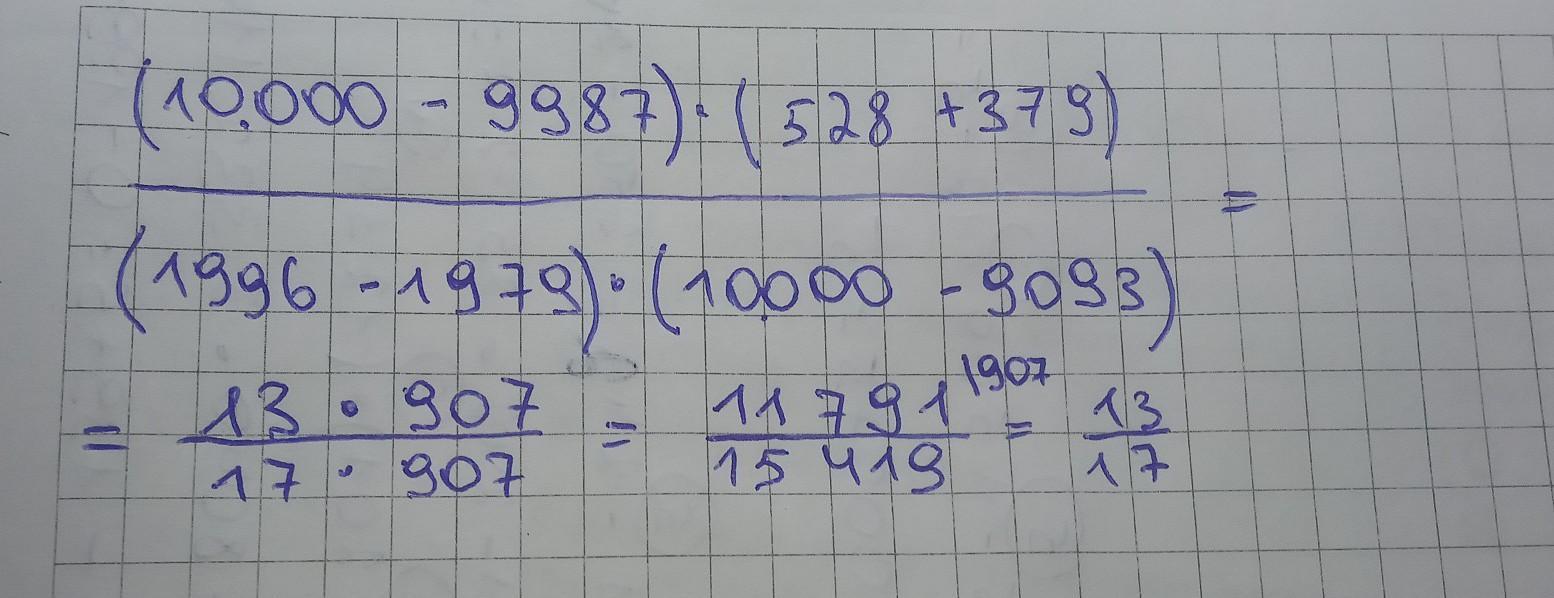 (10.000 - 9987) · (528 + 379)
=
(1996 - 1979) · (10.000 - 9093)
= 13 · 907 = 11 791 |907 = 13
17 · 907 15 419 17